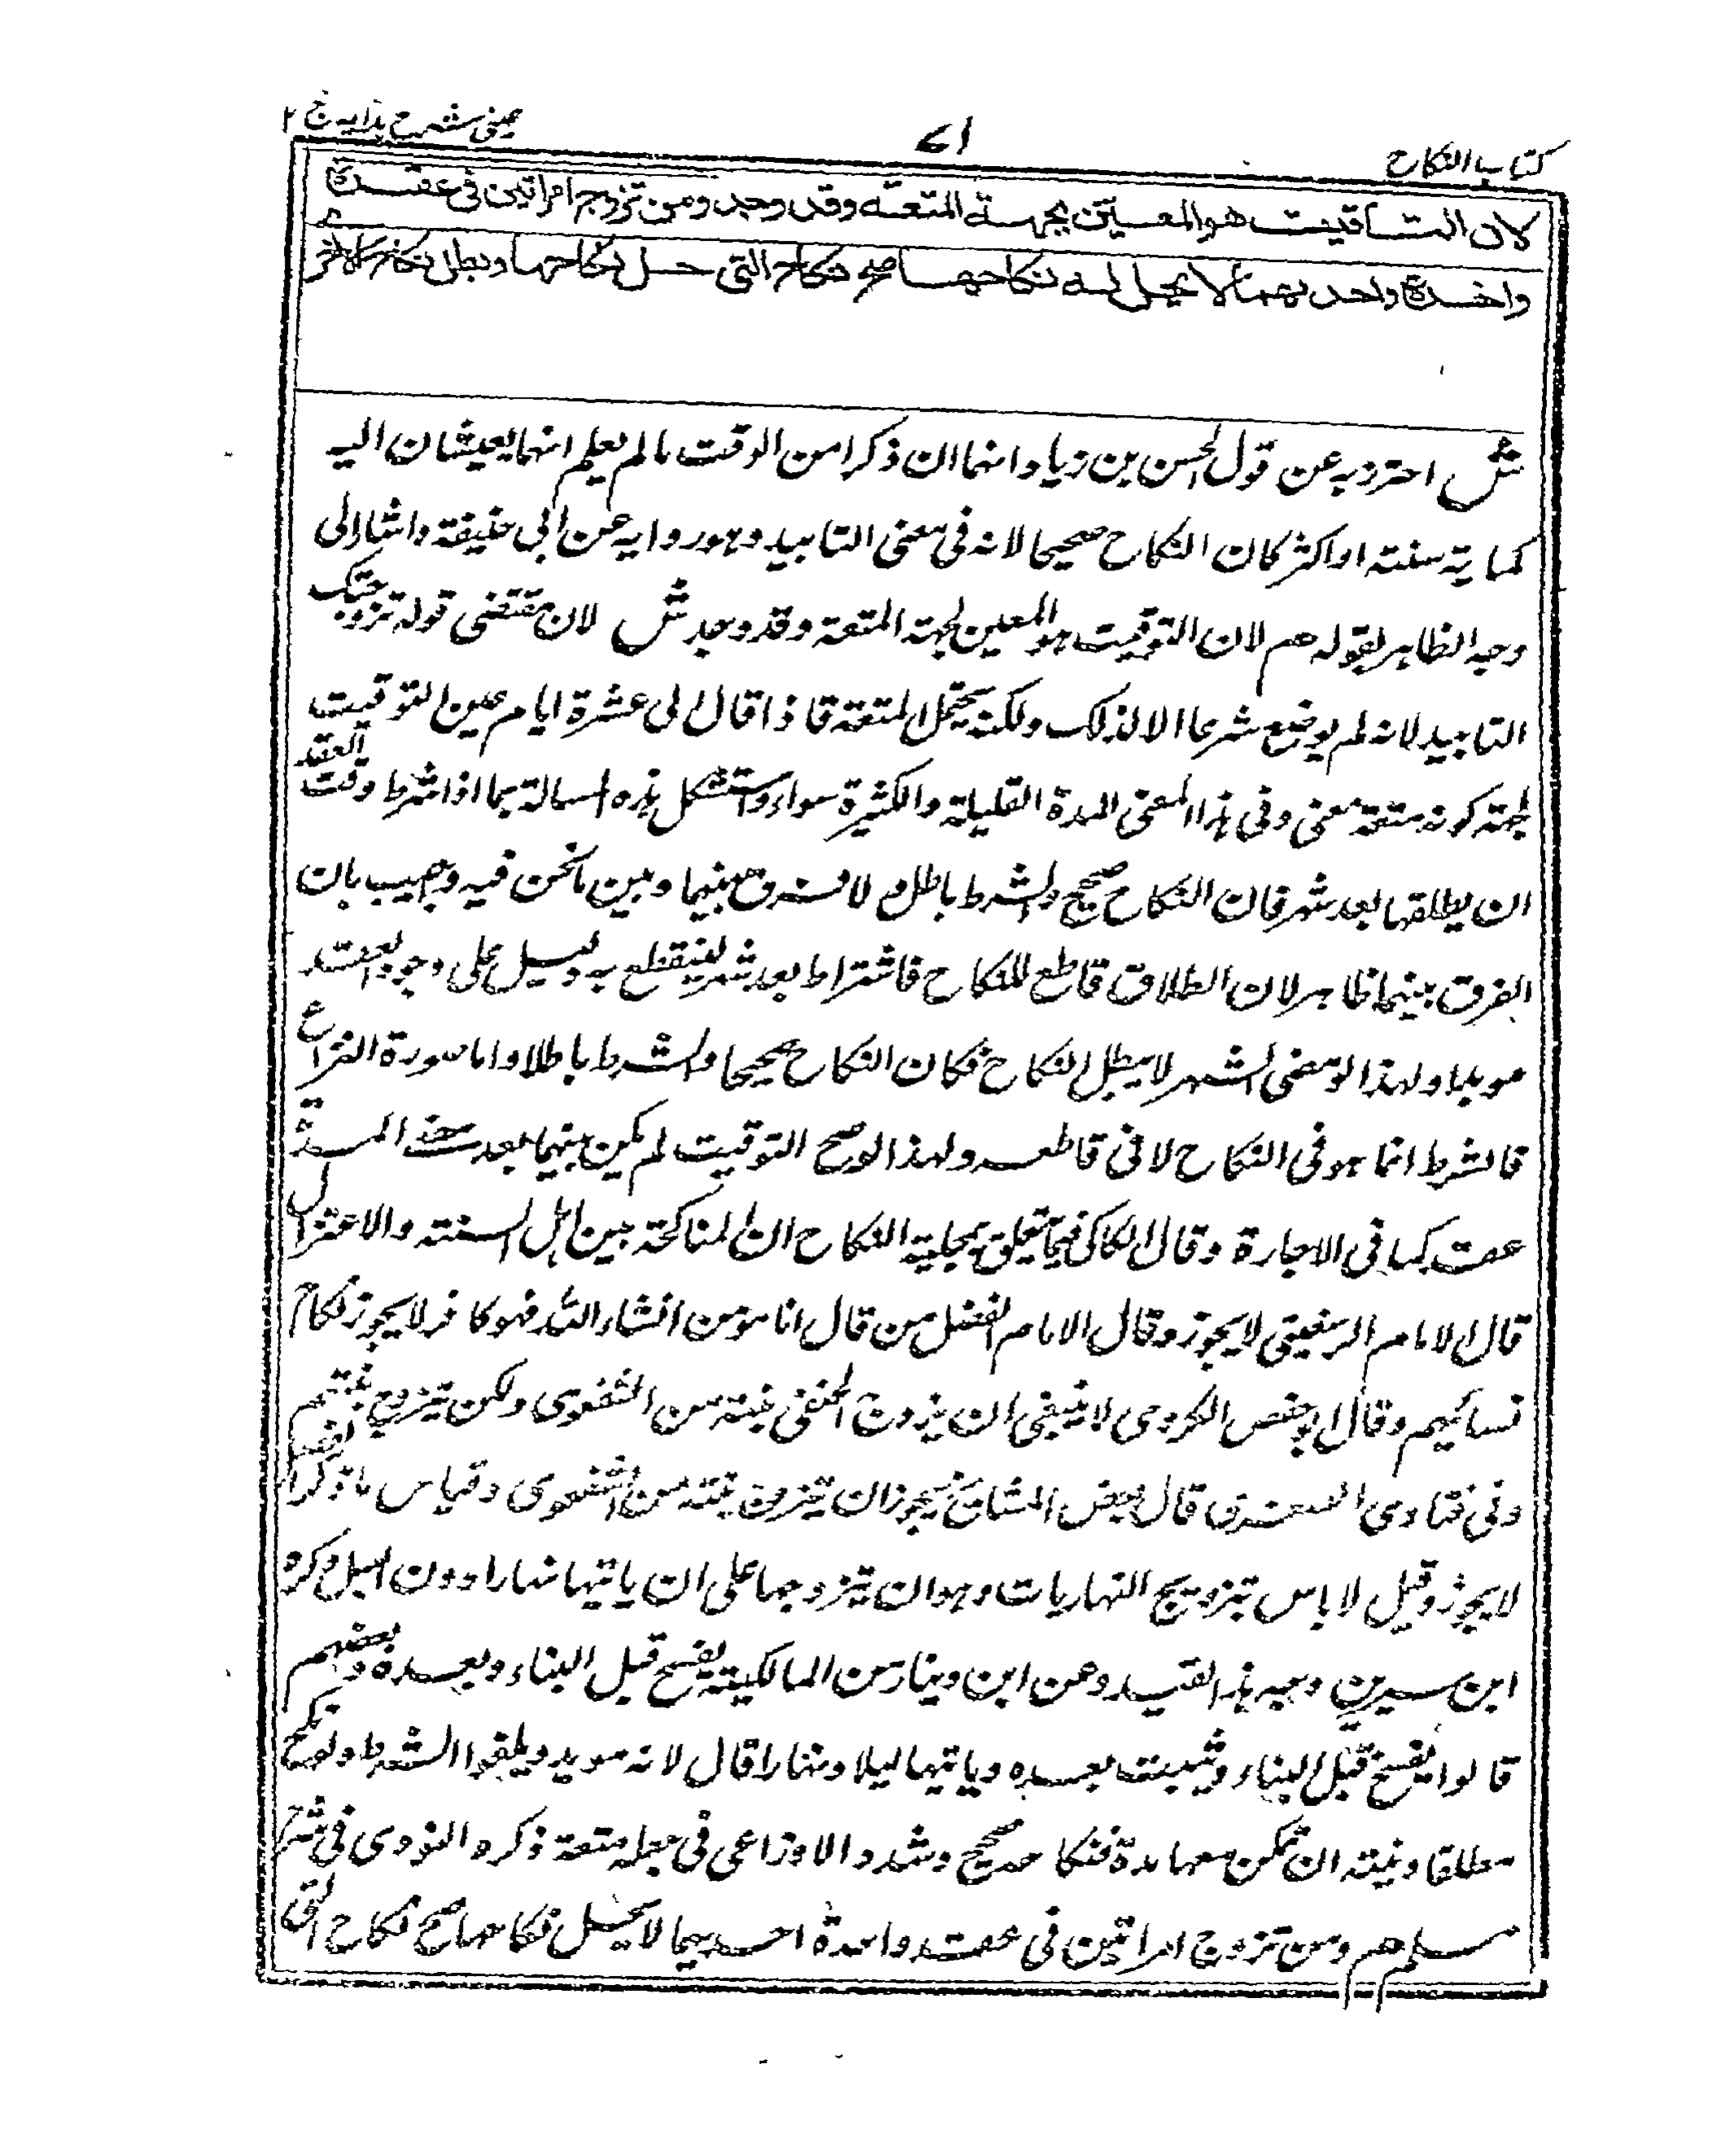 كتاب النكاح
٧١
عينى شرح هدايه ج ٢
لان التاقيت هو المعين بجهة المتعة وقد وجد ومن تزوج امراتين فى عقدة
واحدة واحدىهما لا يحل له نكاحها صح نكاح التى حل نكاحها وبطل نكاح الاخرى
ش احترز به عن قول الحسن بن زياد انهما ان ذكرا من الوقت ما لم يعلم انهما يعيشان اليه
كماية سنة او اكثر كان النكاح صحيحا لانه فى معنى التابيد وهو رواية عن ابى حنيفة واشار الى
وجه الظاهر بقوله هم لان التوقيت هو المعين لجهة المتعة وقد وجد ش لان مقتضى قوله تزوجتك
التابيد لانه لم يوضع شرعا الا لذلك ولكنه يحتمل المتعة فاذا قال الى عشرة ايام عين التوقيت
لجهة كونه متعة معنى وفى هذا المعنى المدة القليلة والكثيرة سواء واستشكل هذه المسالة بما اذا شرط وقت العقد
ان يطلقها بعد شهر فان النكاح صحيح والشرط باطل ولا فرق بينهما وبين ما نحن فيه واجيب بان
الفرق بينهما ظاهر لان الطلاق قاطع للنكاح فاشتراط بعد شهر لينقطع به دليل على وجود العقد
مويدا ولهذا لو مضى الشهر لا يبطل النكاح فكان النكاح صحيحا والشرط باطلا واما صورة النزاع
فالشرط انما هو فى النكاح لا فى قاطعه ولهذا لو صح التوقيت لم يكن بينهما بعد مضى المدة
عقد كما فى الاجارة وقال الكاكى فيما يتعلق بمحلية النكاح ان المناكحة بين اهل السنة والاعتزال
قال الامام الرستغنى لا يجوز وقال الامام الفضل من قال انا مؤمن انشاء الله فهو كافر لا يجوز نكاح
نسائهم وقال ابو حفص الكردرى لا ينبغى ان يزوج الحنفى بنته من الشفعوى ولكن يتزوج بنتهم
وفى فتاوى الصغرى قال بعض المشايخ يجوز ان يتزوج بنته من الشفعوى وقياس ما ذكرنا
لا يجوز وقيل لا باس بتزويج النهاريات وهو ان يتزوجها على ان ياتيها نهارا دون الليل وكره
ابن سيرين وجه هذا القيد وعن ابن دينار من المالكية يفسخ قبل البناء وبعده وبعضهم
قالوا يفسخ قبل البناء ويثبت بعده وياتيها ليلا ونهارا قال لانه مويد ويلغوا الشرط ولو نكح
مطلقا ونيته ان يمكن معها مدة فنكاحه صحيح وشذ الاوزاعى فى جعله متعة ذكره النووى فى شرح
مسلم هم ومن تزوج امراتين فى عقدة واحدة احدىهما لا يحل نكاحها صح نكاح التى